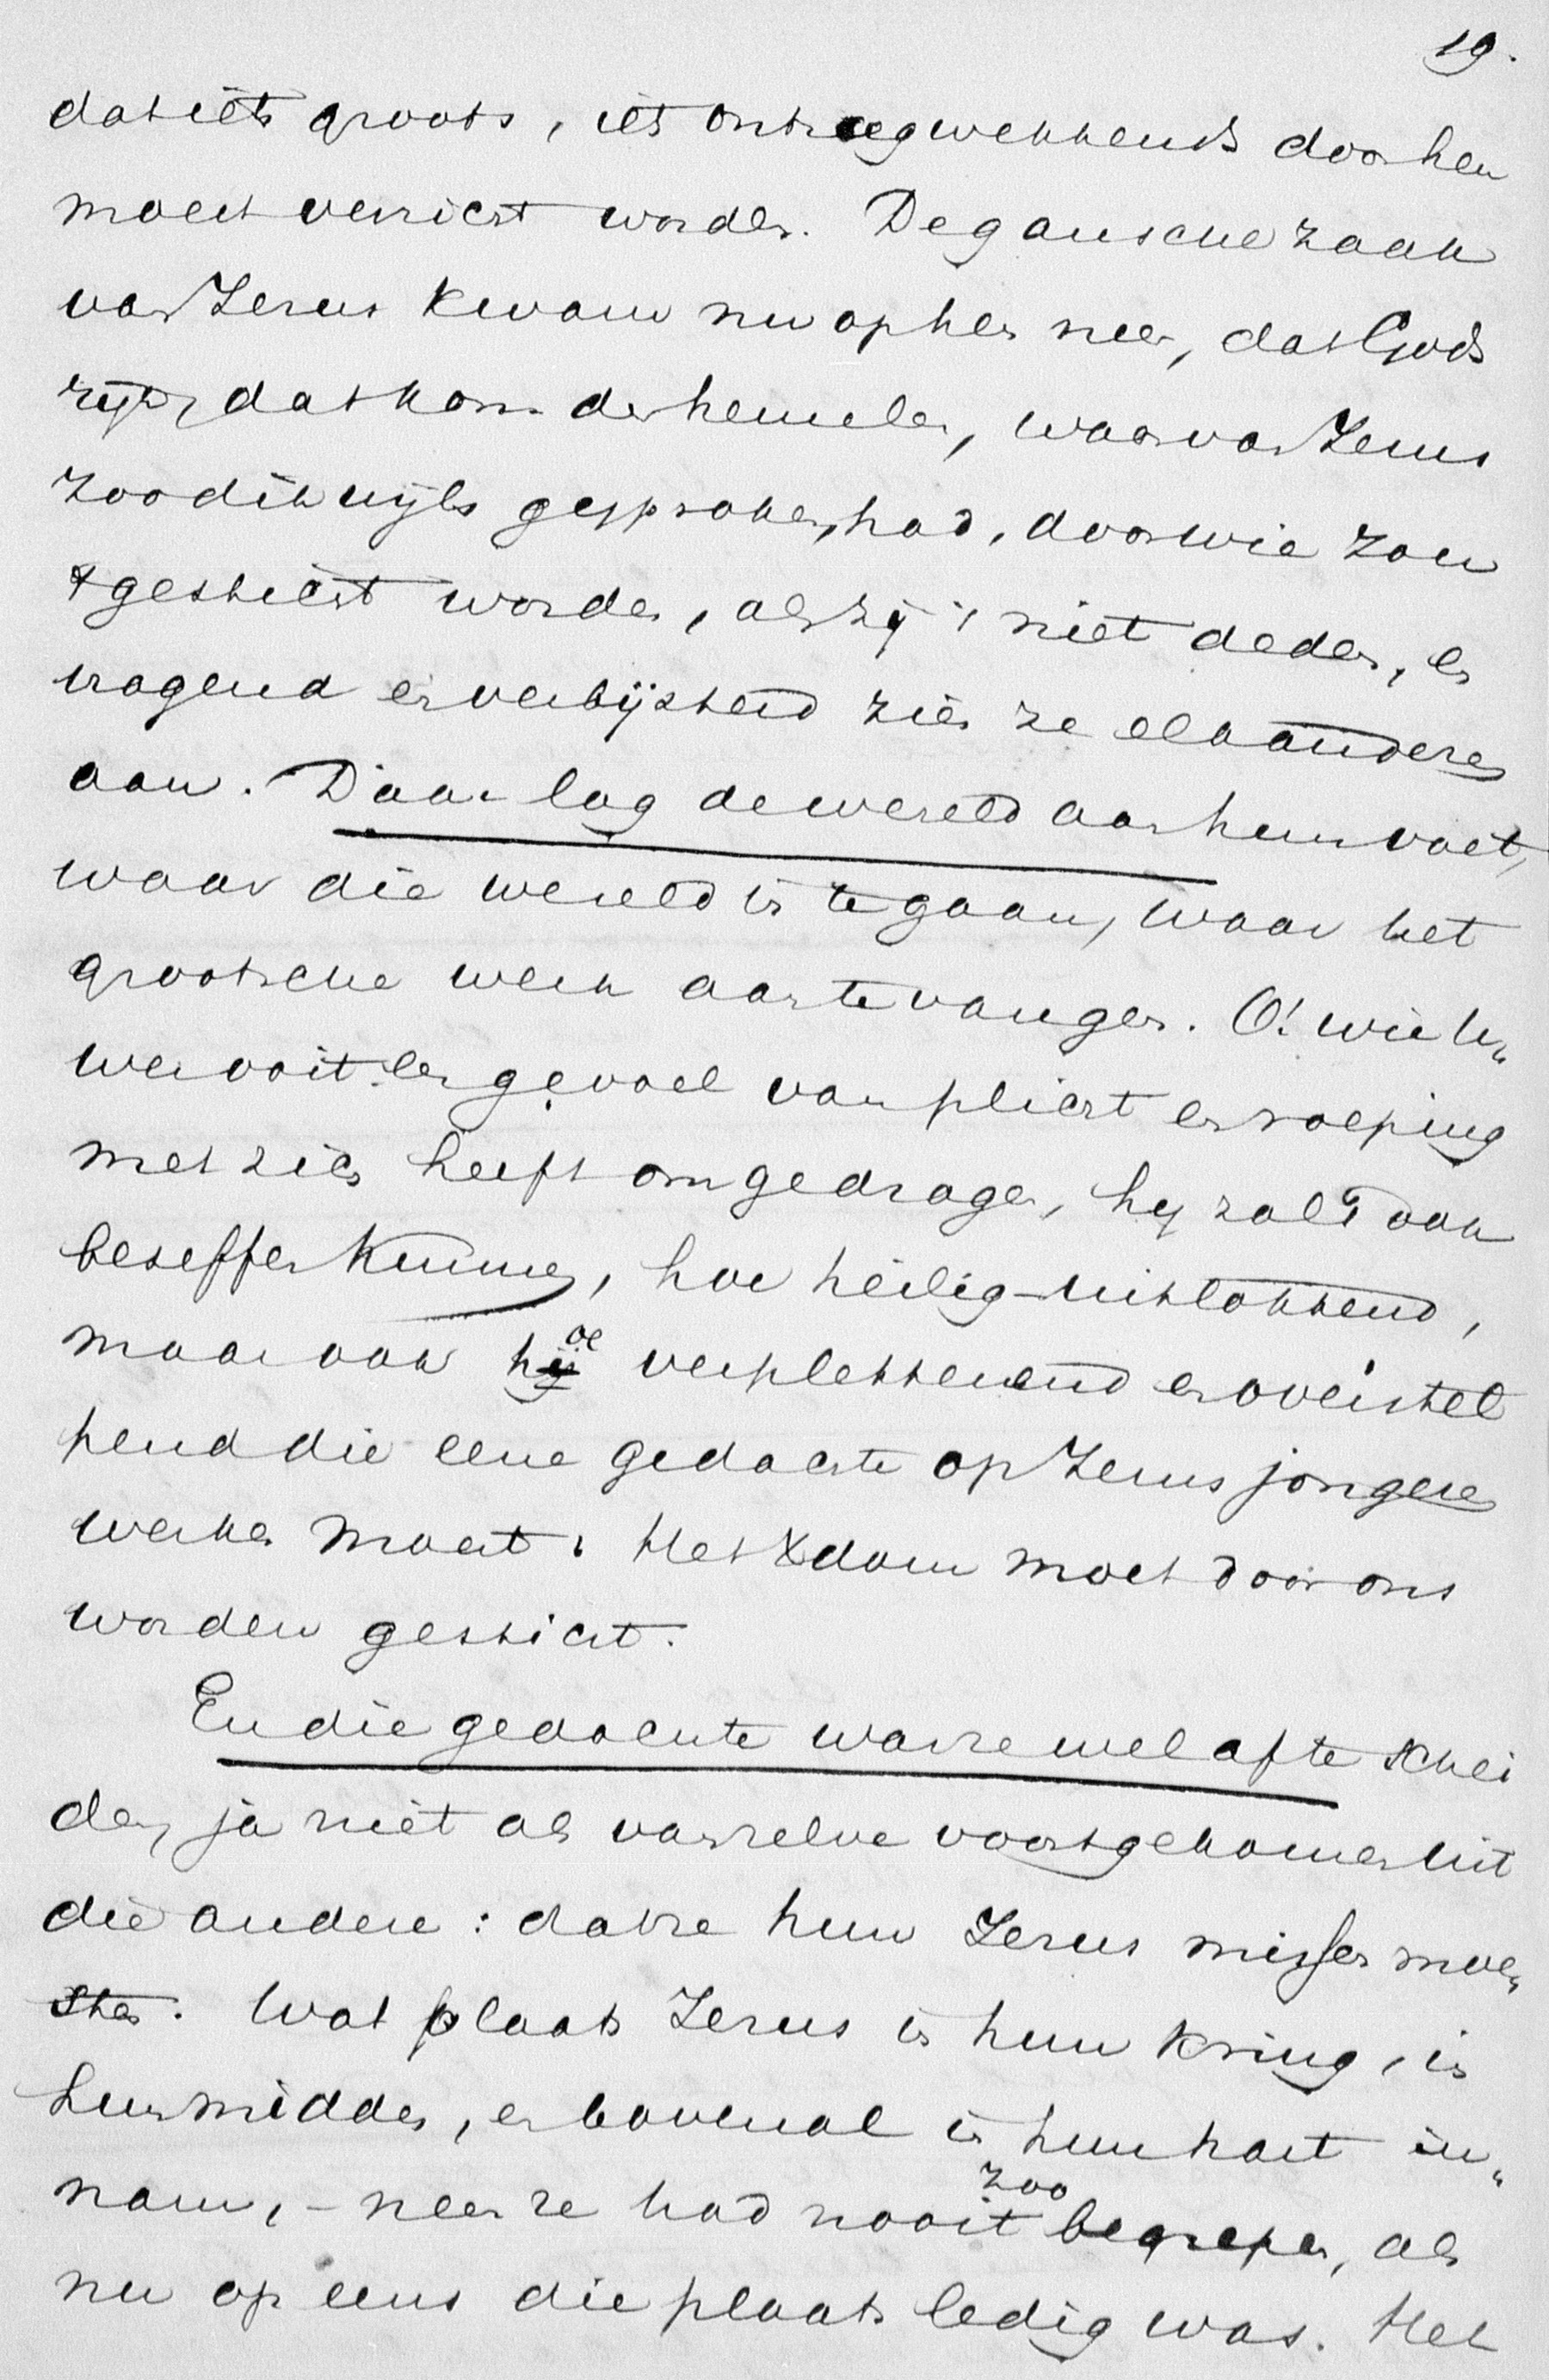 19.
dat iets groots, iets ontzagwekkends door hen
moest verricht worden. De gansche zaak
van Jezus kwam nu op hen neer, dat Gods
rijk, dat kon. der hemelen, waarvan Jezus
zoo dikwijls gesproken had, door wie zou
't gesticht worden, als zij 't niet deden, en
vragend en verbijsterd zien ze elkanderen
aan. Daar lag de wereld aan hun voet,
waar die wereld in te gaan, waar het
grootsche werk aan te vangen. O! wie h„
wer ooit een gevoel van plicht en roeping
met zich heeft omgedragen, hij zal 't ook
beseffen kunnen, hoe heilig-uitlokkend,
maar ook hoe verpletterend en overstel
pend die eene gedachte op Jezus jongeren
werken moest: Het Xdom moet door ons
worden gesticht.
En die gedachte was ze wel af te schei
den, ja niet als vanzelve voortgekomen uit
die andere: dat ze hun Jezus missen moe„
sten. Wat plaats Jezus in hun kring, in
hun midden, en bovenal in hun hart in„
nam, – neen ze had nooit zoo begrepen, als
nu op eens die plaats ledig was. Het